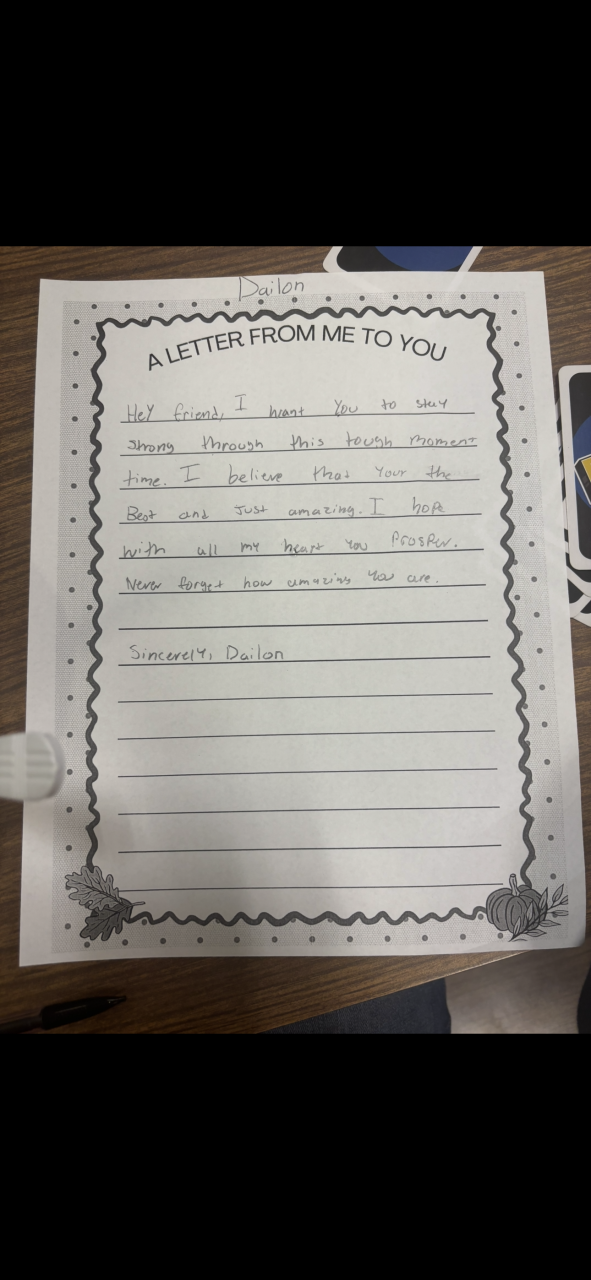 Dailon
A LETTER FROM ME TO YOU
Hey friend, I want You to stay
strong through this tough moment
time. I believe that your the
Best and Just amazing. I hope
with all my heart You Prosper.
Never forget how amazing You are.
Sincerely, Dailon